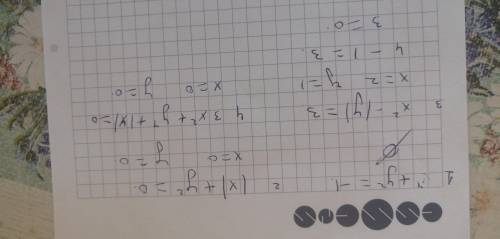 1 x² + y² = -1
∅
2 |x| + y² = 0
x=0 y=0
3 x² - |y| = 3
x=2 y=1
4 - 1 = 3
3 = 0
4 3x² + y⁴ + |x| = 0
x=0 y=0